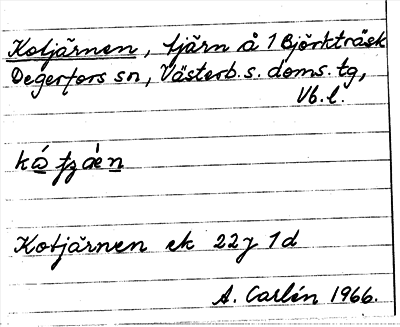 Kotjärnen, tjärn å 1 Björkträsk
Degerfors sn, Västerb. s. doms. tg,
Vb. l.
Kotjärnen ek 22 j 1 d
A. Carlén 1966.